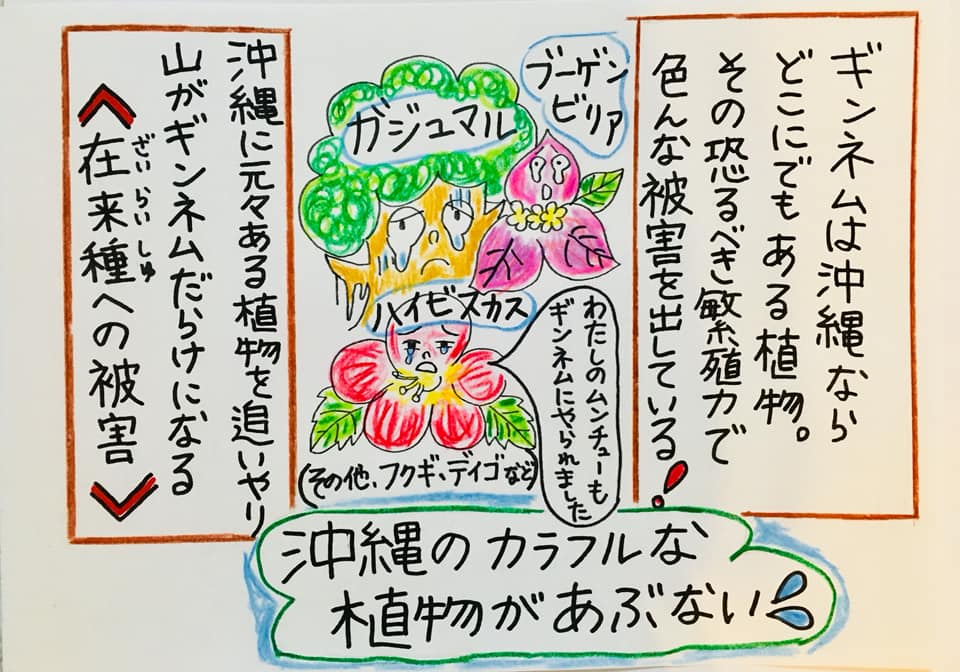 ギンネムは沖縄なら
どこにでもある植物。
その恐るべき繁殖力で
色んな被害を出している!
ブーゲン
ビリア
ガジュマル
ハイビスカス
わたしのムンチューも
ギンネムにやられました
(その他、フクギ、デイゴなど)
沖縄に元々ある植物を追いやり
山がギンネムだらけになる
《在来種への被害》
ざいらいしゅ
沖縄のカラフルな
植物があぶない